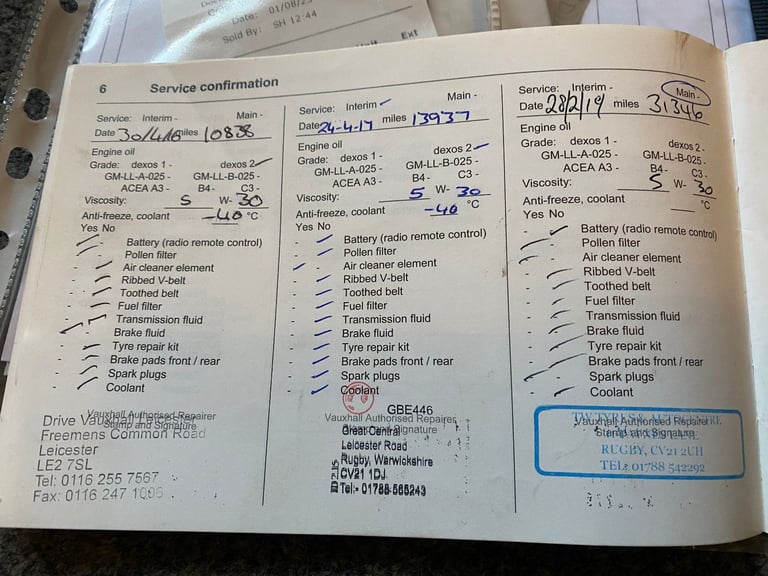 Date: 01/08/2
Sold By: SH 12:44
Ext
6 Service confirmation
Service: Interim - Main -
Date 30/4/16 miles 10838
Engine oil
Grade: dexos 1 - dexos 2 ✓
GM-LL-A-025 - GM-LL-B-025 -
ACEA A3 - B4- C3 -
Viscosity: 5 W- 30
Anti-freeze, coolant -40 °C
Yes No
Battery (radio remote control)
Pollen filter
Air cleaner element
Ribbed V-belt
Toothed belt
Fuel filter
Transmission fluid
Brake fluid
Tyre repair kit
Brake pads front / rear
Spark plugs
Coolant
Vauxhall Authorised Repairer
Stamp and Signature
Drive Vauxhall Leicester
Freemens Common Road
Leicester
LE2 7SL
Tel: 0116 255 7567
Fax: 0116 247
Service: Interim ✓ Main -
Date 24-4-17 miles 13937
Engine oil
Grade: dexos 1 - dexos 2 ✓
GM-LL-A-025 - GM-LL-B-025 -
ACEA A3 - B4- C3 -
Viscosity: 5 W- 30
Anti-freeze, coolant -40 °C
Yes No
Battery (radio remote control)
Pollen filter
Air cleaner element
Ribbed V-belt
Toothed belt
Fuel filter
Transmission fluid
Brake fluid
Tyre repair kit
Brake pads front / rear
Spark plugs
Coolant
GBE446
Vauxhall Authorised Repairer
Stamp and Signature
Great Central
Leicester Road
Rugby, Warwickshire
CV21 1DJ
Tel:- 01788 565243
Service: Interim - Main -
Date 28/2/19 miles 31346
Engine oil
Grade: dexos 1 - dexos 2 -
GM-LL-A-025 - GM-LL-B-025 -
ACEA A3 - B4- C3 -
Viscosity: 5 W- 30
Anti-freeze, coolant °C
Yes No
Battery (radio remote control)
Pollen filter
Air cleaner element
Ribbed V-belt
Toothed belt
Fuel filter
Transmission fluid
Brake fluid
Tyre repair kit
Brake pads front / rear
Spark plugs
Coolant
Vauxhall Authorised Repairer
Stamp and Signature
RUGBY, CV21 2UH
TEL: 01788 542292